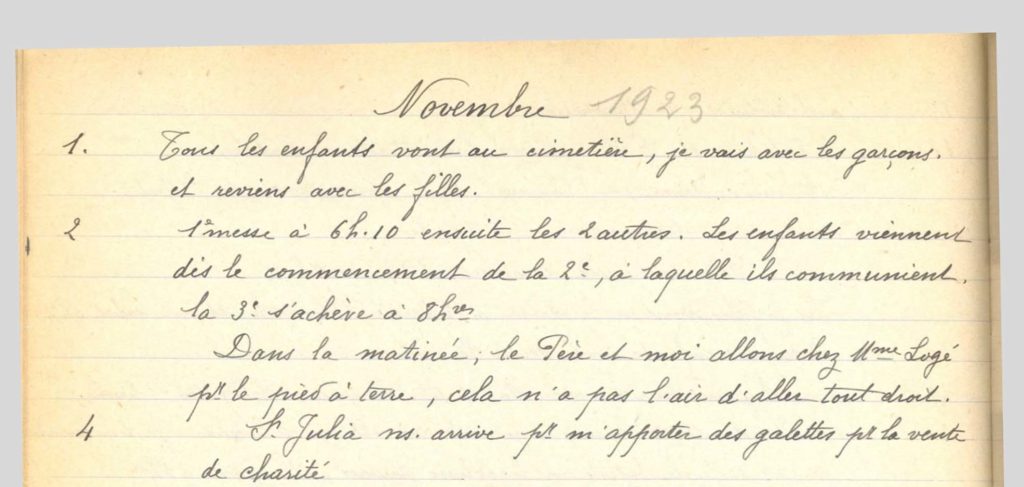 Novembre 1923
1. Tous les enfants vont au cimetière, je vais avec les garçons.
et reviens avec les filles.
2 1e messe à 6h.10 ensuite les 2 autres. Les enfants viennent
dès le commencement de la 2e, à laquelle ils communient.
la 3e s'achève à 8hres
Dans la matinée, le Père et moi allons chez Mme Logé
pr le pied à terre, cela n'a pas l'air d'aller tout droit.
4 Sr Julia ns. arrive pr m'apporter des galettes pr la vente
de charité